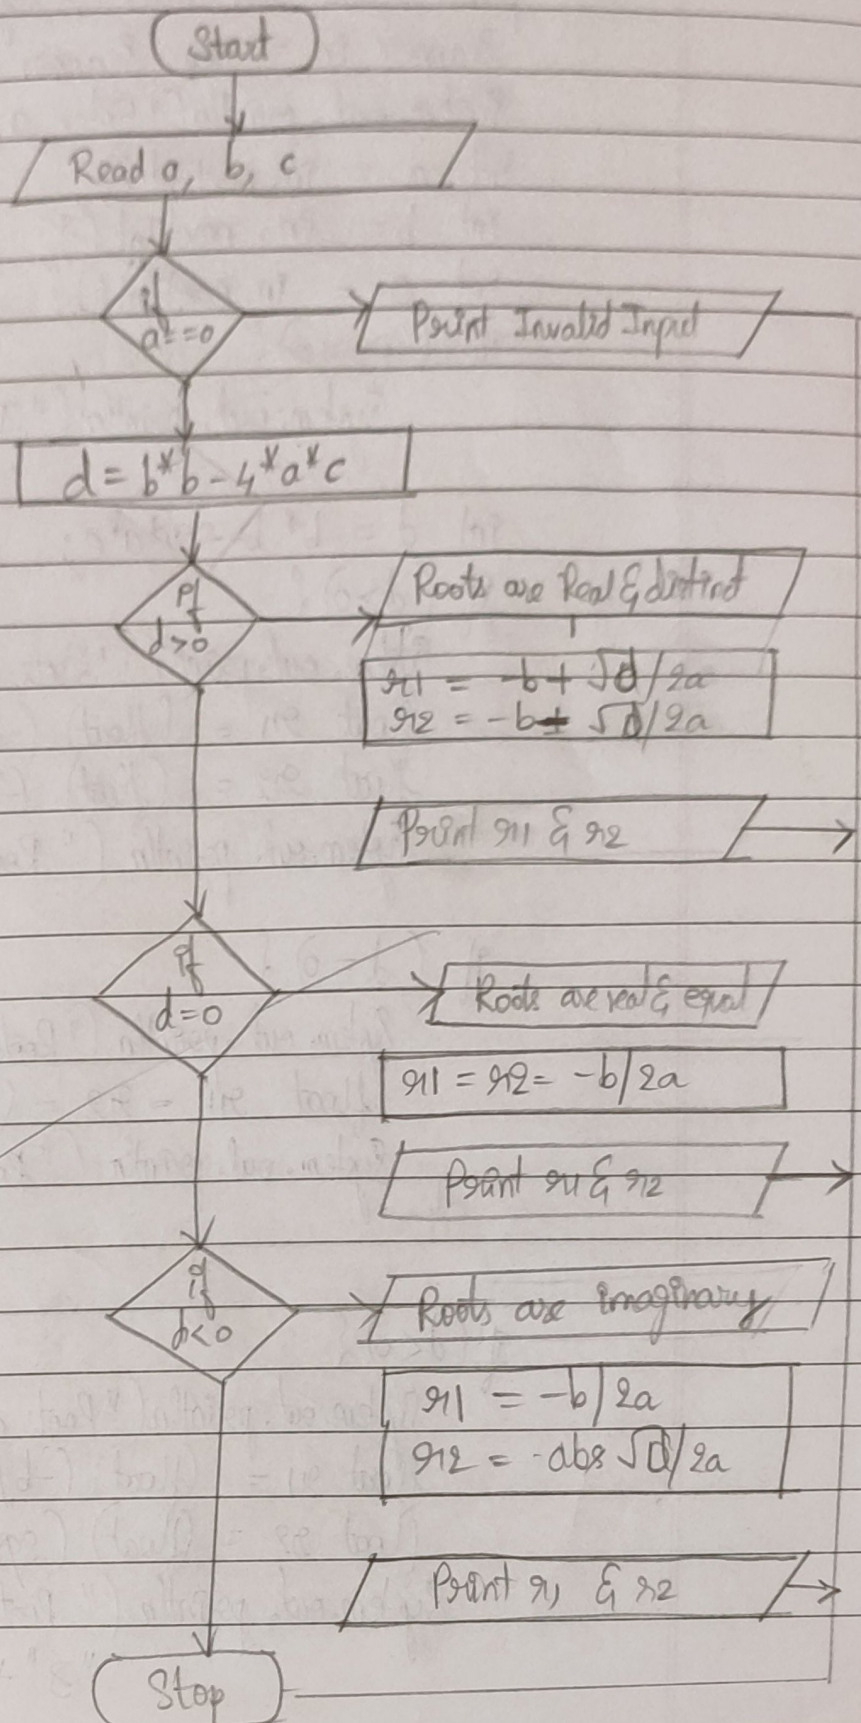 Start
Read a, b, c
if
a==0
Print Invalid Input
d = b*b - 4*a*c
if
d>0
Roots are Real & distinct
r1 = -b + √d/2a
r2 = -b - √d/2a
Print r1 & r2
if
d=0
Roots are real & equal
r1 = r2 = -b/2a
Print r1 & r2
if
d<0
Roots are imaginary
r1 = -b/2a
r2 = -abs √d/2a
Print r1 & r2
Stop